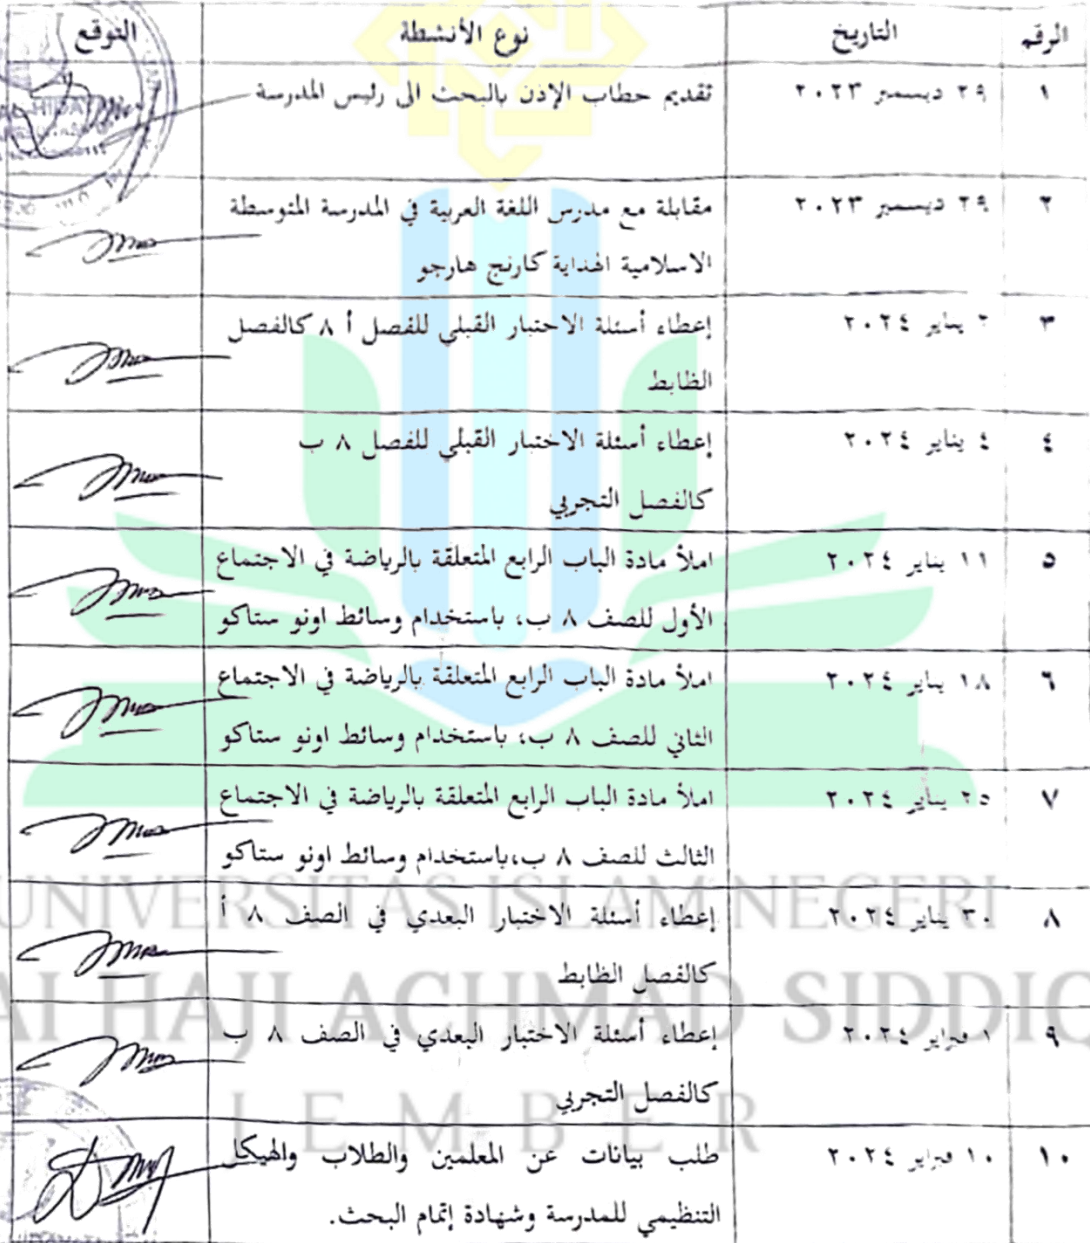 الرقم التاريخ نوع الأنشطة التوقع
١ ٢٩ ديسمبر ٢٠٢٣ تقديم حطاب الإذن بالبحث الى رئيس المدرسة
٢ ٢٩ ديسمبر ٢٠٢٣ مقابلة مع مدرس اللغة العربية في المدرسة المتوسطة
الاسلامية الهداية كارنج هارجو
٣ ٢ يناير ٢٠٢٤ إعطاء أسئلة الاحتبار القبلي للفصل أ ٨ كالفصل
الظابط
٤ ٤ يناير ٢٠٢٤ إعطاء أسئلة الاختبار القبلي للفصل ٨ ب
كالفصل التجربي
٥ ١١ يناير ٢٠٢٤ املأ مادة الباب الرابع المتعلقة بالرياضة في الاجتماع
الأول للصف ٨ ب، باستخدام وسائط اونو ستاكو
٦ ١٨ يناير ٢٠٢٤ املأ مادة الباب الرابع المتعلقة بالرياضة في الاجتماع
الثاني للصف ٨ ب، باستخدام وسائط اونو ستاكو
٧ ٢٥ يناير ٢٠٢٤ املأ مادة الباب الرابع المتعلقة بالرياضة في الاجتماع
الثالث للصف ٨ ب،باستخدام وسائط اونو ستاكو
٨ ٣٠ يناير ٢٠٢٤ إعطاء أسئلة الاختبار البعدي في الصف ٨ أ
كالفصل الظابط
٩ ١ فبراير ٢٠٢٤ إعطاء أسئلة الاختبار البعدي في الصف ٨ ب
كالفصل التجربي
١٠ ١٠ فبراير ٢٠٢٤ طلب بيانات عن المعلمين والطلاب والهيكل
التنظيمي للمدرسة وشهادة إتمام البحث.
UNIVERSITAS ISLAM NEGERI
AI HAJI ACHMAD SIDDIQ
JEMBER